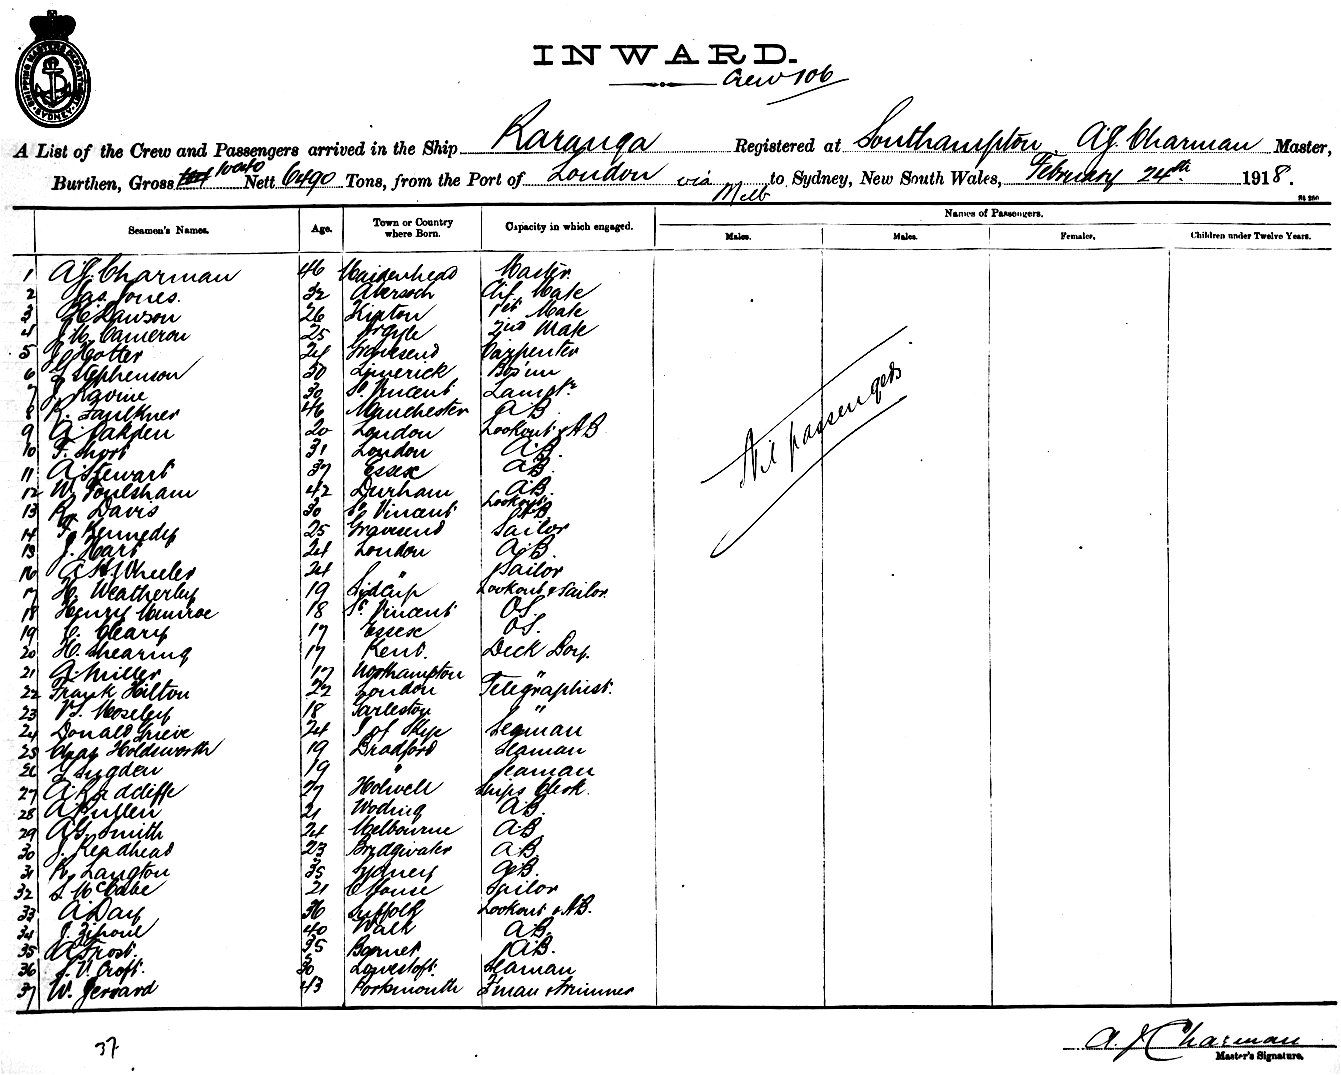 INWARD.
Crew 106
A List of the Crew and Passengers arrived in the Ship Karanga Registered at Southampton, A.J. Charman Master,
Burthen, Gross 10040 Nett 6490 Tons, from the Port of London via Melb to Sydney, New South Wales, February 24th 1918.
Seamen's Names. Age. Town or Country where Born. Capacity in which engaged. Names of Passengers.
Males. Males. Females. Children under Twelve Years.
1 A.J. Charman 46 Maidenhead Master
2 Jas. Jones. 32 Abersoch Chf. Mate
3 Dawson 26 Kipton 1st Mate
4 J. M. Cameron 25 Argyle 2nd Mate
5 J. Hotter 24 Gravesend Carpenter
6 G Stephenson 30 Limerick Bos'un
7 J. Ravine 30 St. Vincent Lampt.
8 R. Faulkner 46 Manchester A.B.
9 G. Oakden 20 London Lookout & AB
10 F. Short 31 London A.B.
11 A Stewart 37 Essex A.B.
12 W. Foulsham 42 Durham A.B.
13 R. Davis 30 St Vincent Lookout AB
14 F. Kennedy 25 Gravesend Sailor
15 J. Hart 24 London A.B.
16 A.H. Wheeler 24 " Sailor
17 H. Weatherley 19 Sidcup Lookout & Sailor.
18 Henry Munroe 18 St. Vincent O.S.
19 C. Cleary 17 Essex O.S.
20 H. Shearing 17 Kent. Deck Boy.
21 G. Miller 17 Northampton "
22 Frank Hilton 22 London Telegraphist.
23 V.J. Moseley 18 Earleston "
24 Donald Grieve 24 I of Skye Seaman
25 Chas Holdsworth 19 Bradford Seaman
26 G Sugden 19 " Seaman
27 A. Radcliffe 27 Holwell Ships Clerk.
28 A Pullen 21 Woking A.B.
29 A.G. Smith 24 Melbourne A.B.
30 J. Readhead 23 Bridgwater A.B.
31 R. Langton 35 Sydney A.B.
32 S. McCabe 21 Sailor
33 A. Day 36 Suffolk Lookout & AB.
34 J. 40 Walk A.B.
35 A Frost. 35 Barnet A.B.
36 J. V. Croft. 30 Lowestoft. Seaman
37 W. Gerrard 43 Portsmouth F'man & Trimmer
Nil passengers
37
A. J. Charman
Master's Signature.